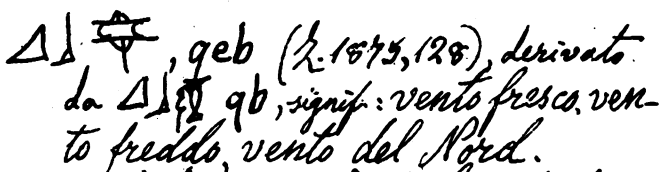 , qeb (Z. 1875, 128), derivato
da qb, signif: vento fresco, ven-
to freddo, vento del Nord.